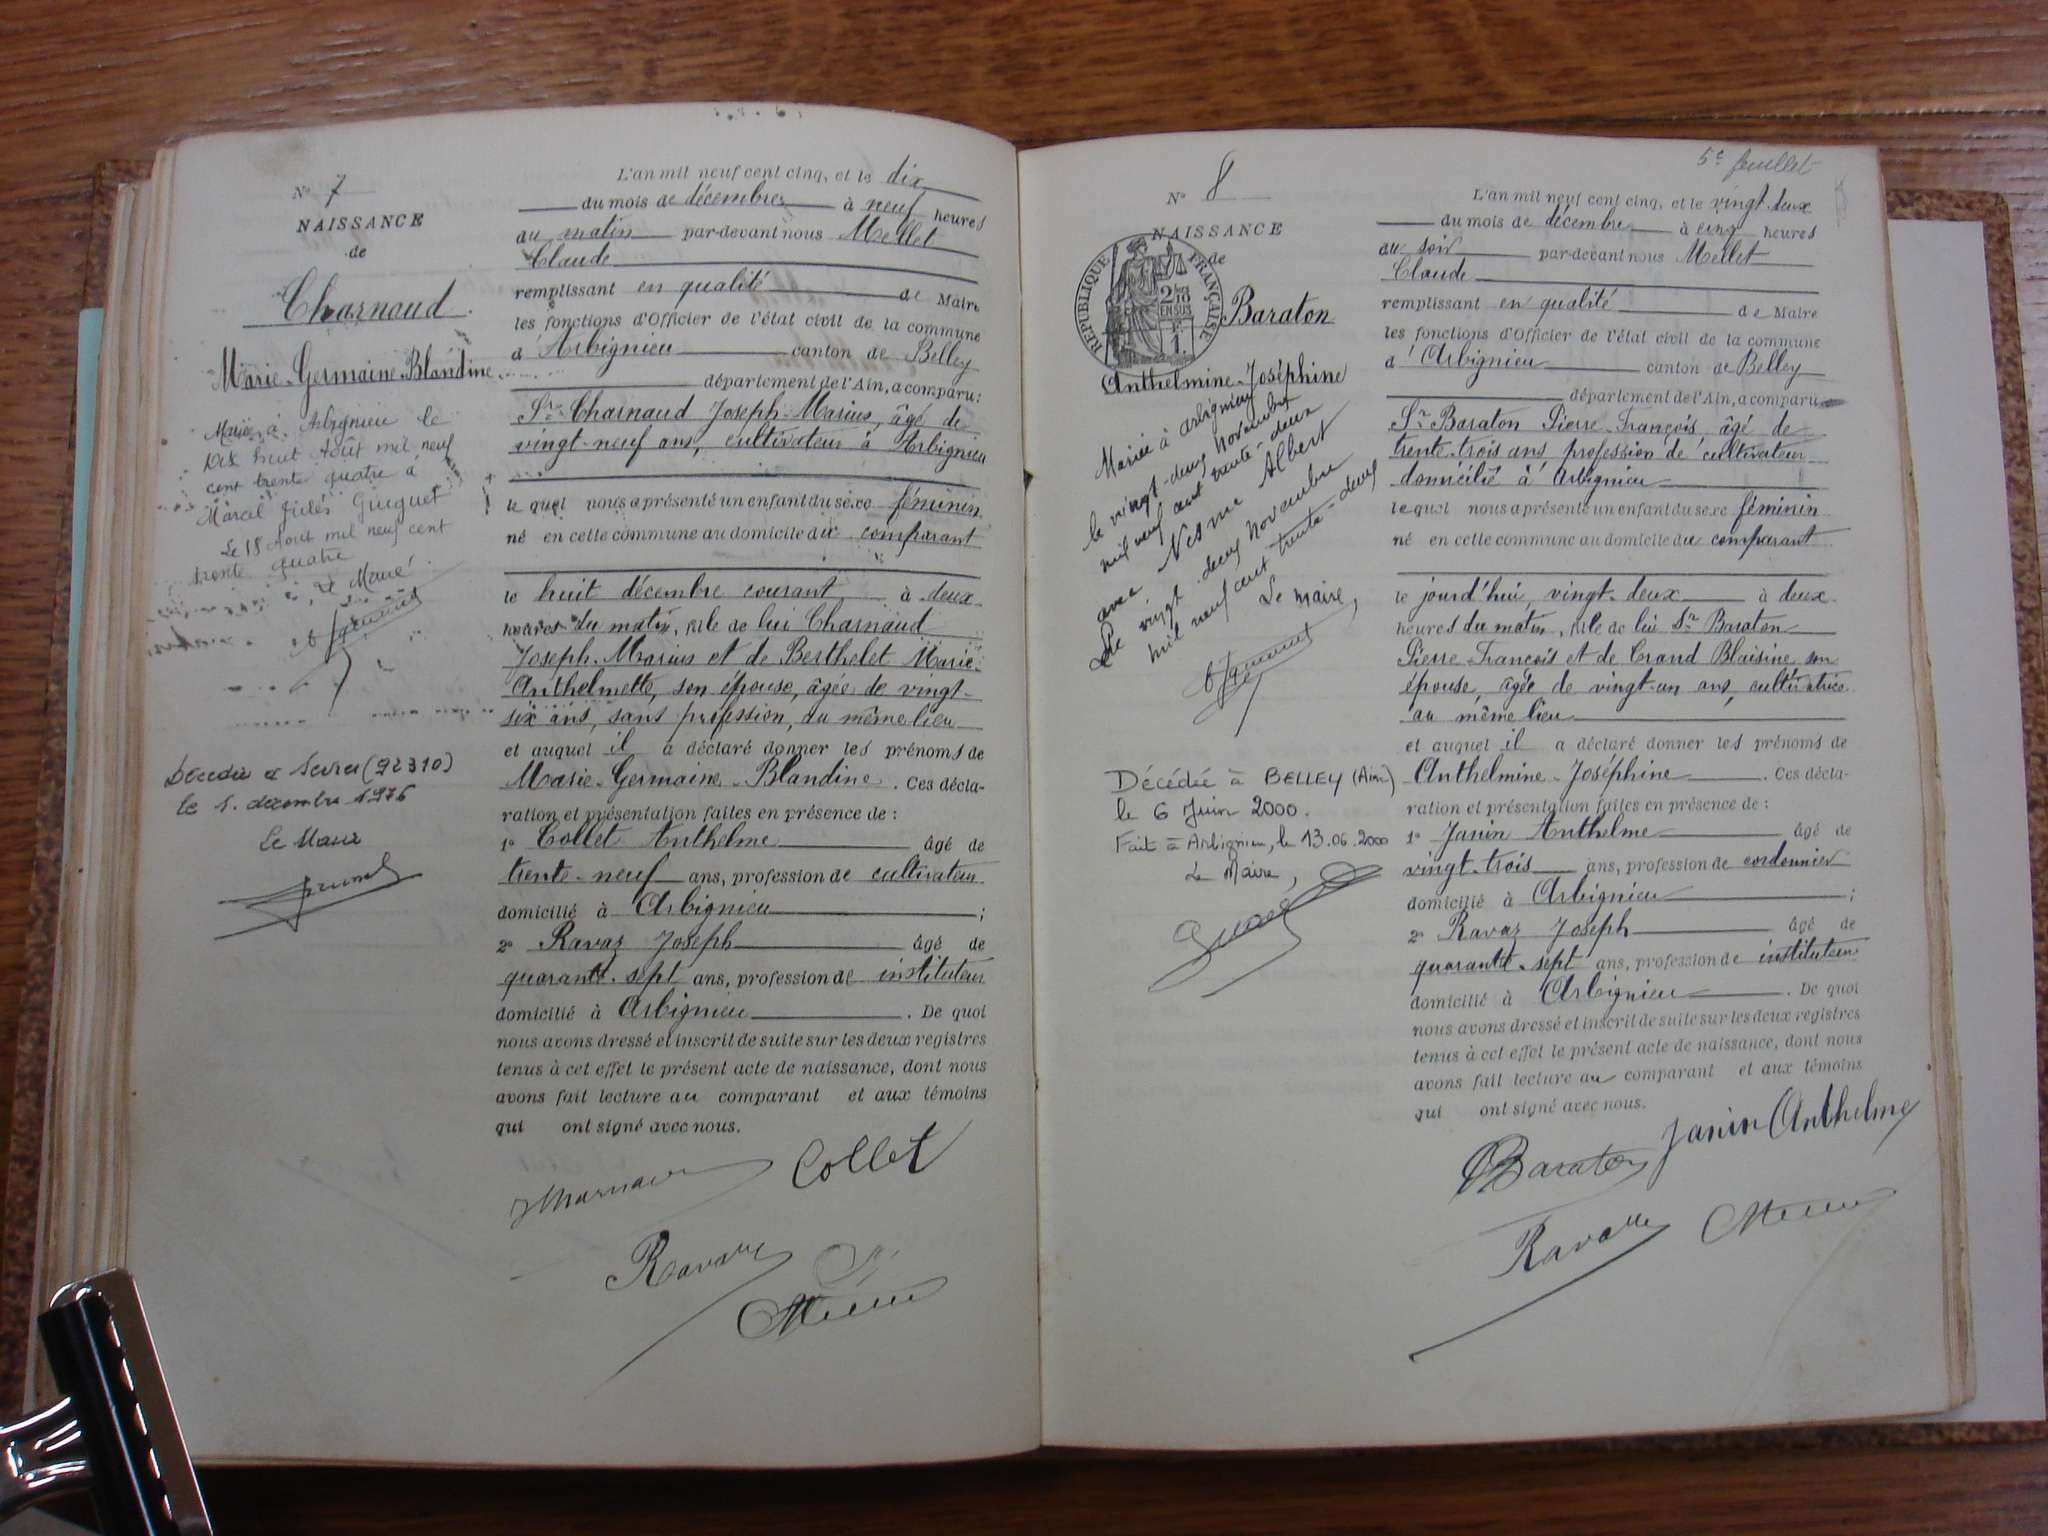 N° 7
NAISSANCE
de
Charnaud
Marie-Germaine-Blandine
Mariée à Arbignieu le
Dix huit Août mil neuf
cent trente quatre à
Marcel Jules Guguet
Le 18 Août mil neuf cent
trente quatre
Le Maire
Décédée à Sevres (92310)
le 1. décembre 1976
Le Maire
L'an mil neuf cent cinq, et le dix
du mois de décembre à neuf heures
du matin par-devant nous Mellet
Claude
remplissant en qualité de Maire
les fonctions d'Officier de l'état civil de la commune
d'Arbignieu canton de Belley
département de l'Ain, a comparu:
Sr Charnaud Joseph-Marius, âgé de
vingt-neuf ans, cultivateur à Arbignieu
lequel nous a présenté un enfant du sexe féminin
né en cette commune au domicile du comparant
le huit décembre courant à deux
heures du matin, né de lui Charnaud
Joseph-Marius et de Berthelet Marie-
Anthelmette, son épouse, âgée de vingt-
six ans, sans profession, du même lieu
et auquel il a déclaré donner les prénoms de
Marie-Germaine-Blandine. Ces décla-
ration et présentation faites en présence de :
1° Collet Anthelme âgé de
trente-neuf ans, profession de cultivateur
domicilié à Arbignieu ;
2° Ravaz Joseph âgé de
quarante-sept ans, profession de instituteur
domicilié à Arbignieu. De quoi
nous avons dressé et inscrit de suite sur les deux registres
tenus à cet effet le présent acte de naissance, dont nous
avons fait lecture au comparant et aux témoins
qui ont signé avec nous.
Collet
Ravaz
5e feuillet
N° 8
NAISSANCE
de
RÉPUBLIQUE FRANÇAISE
2/10
EN SUS
1F.
Baraton
Anthelmine-Joséphine
Mariée à Arbignieu
le vingt-deux Novembre
mil neuf cent trente-deux
avec Nesme Albert
Le vingt-deux Novembre
mil neuf cent trente-deux
Le Maire,
Décédée à BELLEY (Ain)
le 6 Juin 2000.
Fait à Arbignieu, le 13.06.2000
Le Maire,
L'an mil neuf cent cinq, et le vingt-deux
du mois de décembre à cinq heures
du soir par-devant nous Mellet
Claude
remplissant en qualité de Maire
les fonctions d'Officier de l'état civil de la commune
d'Arbignieu canton de Belley
département de l'Ain, a comparu
Sr Baraton Pierre-François âgé de
trente-trois ans, profession de cultivateur
domicilié à Arbignieu
lequel nous a présenté un enfant du sexe féminin
né en cette commune au domicile du comparant
le jourd'hui, vingt-deux à deux
heures du matin, né de lui Sr Baraton
Pierre-François et de Grand Blaisine son
épouse, âgée de vingt-un ans, cultivatrice
au même lieu
et auquel il a déclaré donner les prénoms de
Anthelmine-Joséphine. Ces décla-
ration et présentation faites en présence de :
1° Janin Anthelme âgé de
vingt-trois ans, profession de cordonnier
domicilié à Arbignieu ;
2° Ravaz Joseph âgé de
quarante-sept ans, profession de instituteur
domicilié à Arbignieu. De quoi
nous avons dressé et inscrit de suite sur les deux registres
tenus à cet effet le présent acte de naissance, dont nous
avons fait lecture au comparant et aux témoins
qui ont signé avec nous.
Baraton Janin Anthelme
Ravaz